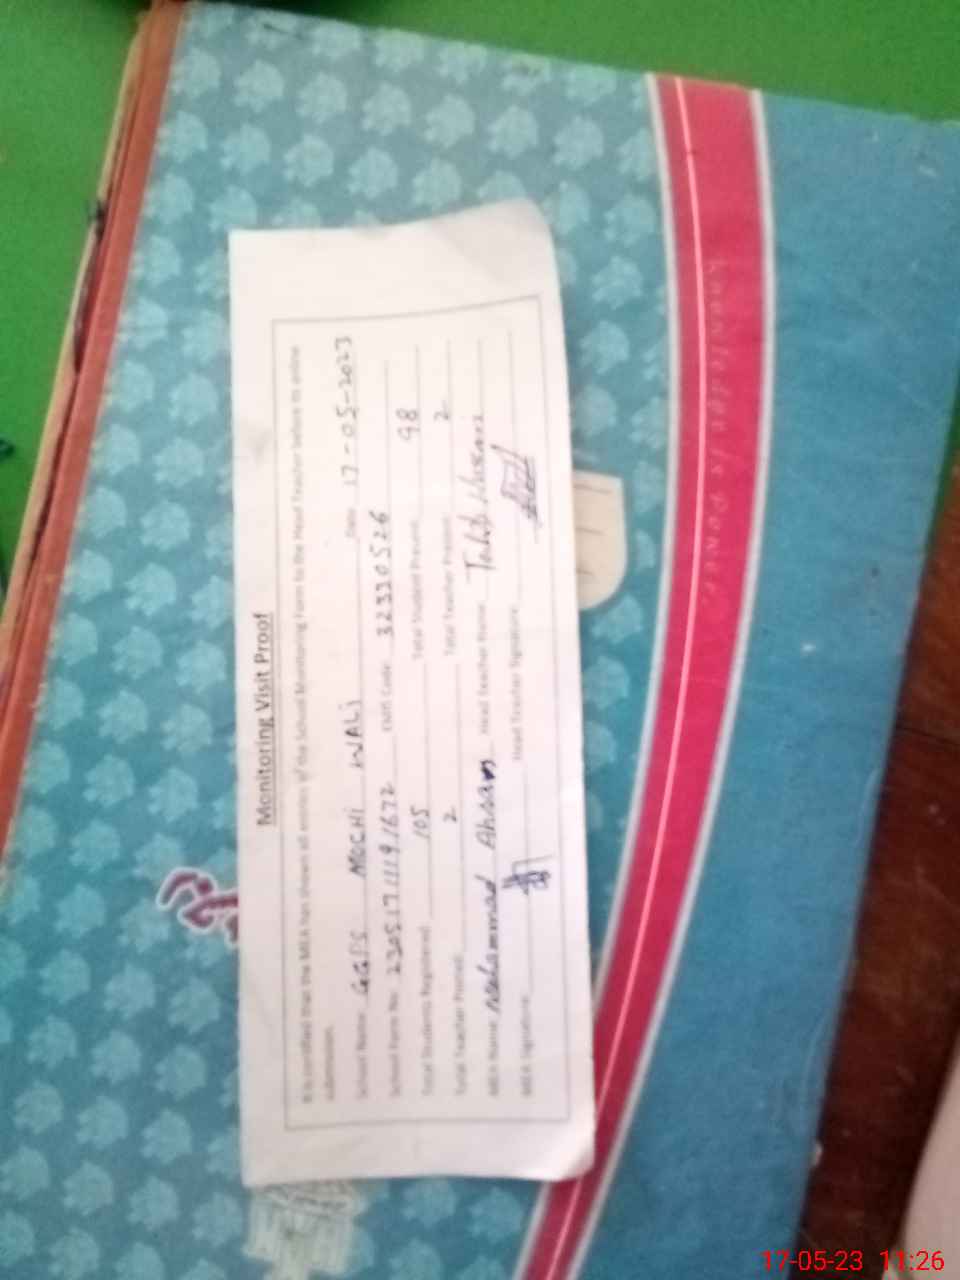 Monitoring Visit Proof
It is certified that the MEA has shown all entries of the School Monitoring Form to the Head Teacher before its online
submission.
School Name GGPS MOCHI WALI Date 17-05-2023
School Form No. 230517111191672 EMIS Code 32330526
Total Students Registered 105 Total Student Present 98
Total Teacher Posted 2 Total Teacher Present 2
MEA Name Muhammad Ahsan Head Teacher Name
MEA Signature Head Teacher Signature
Knowledge is Power.
17-05-23 11:26